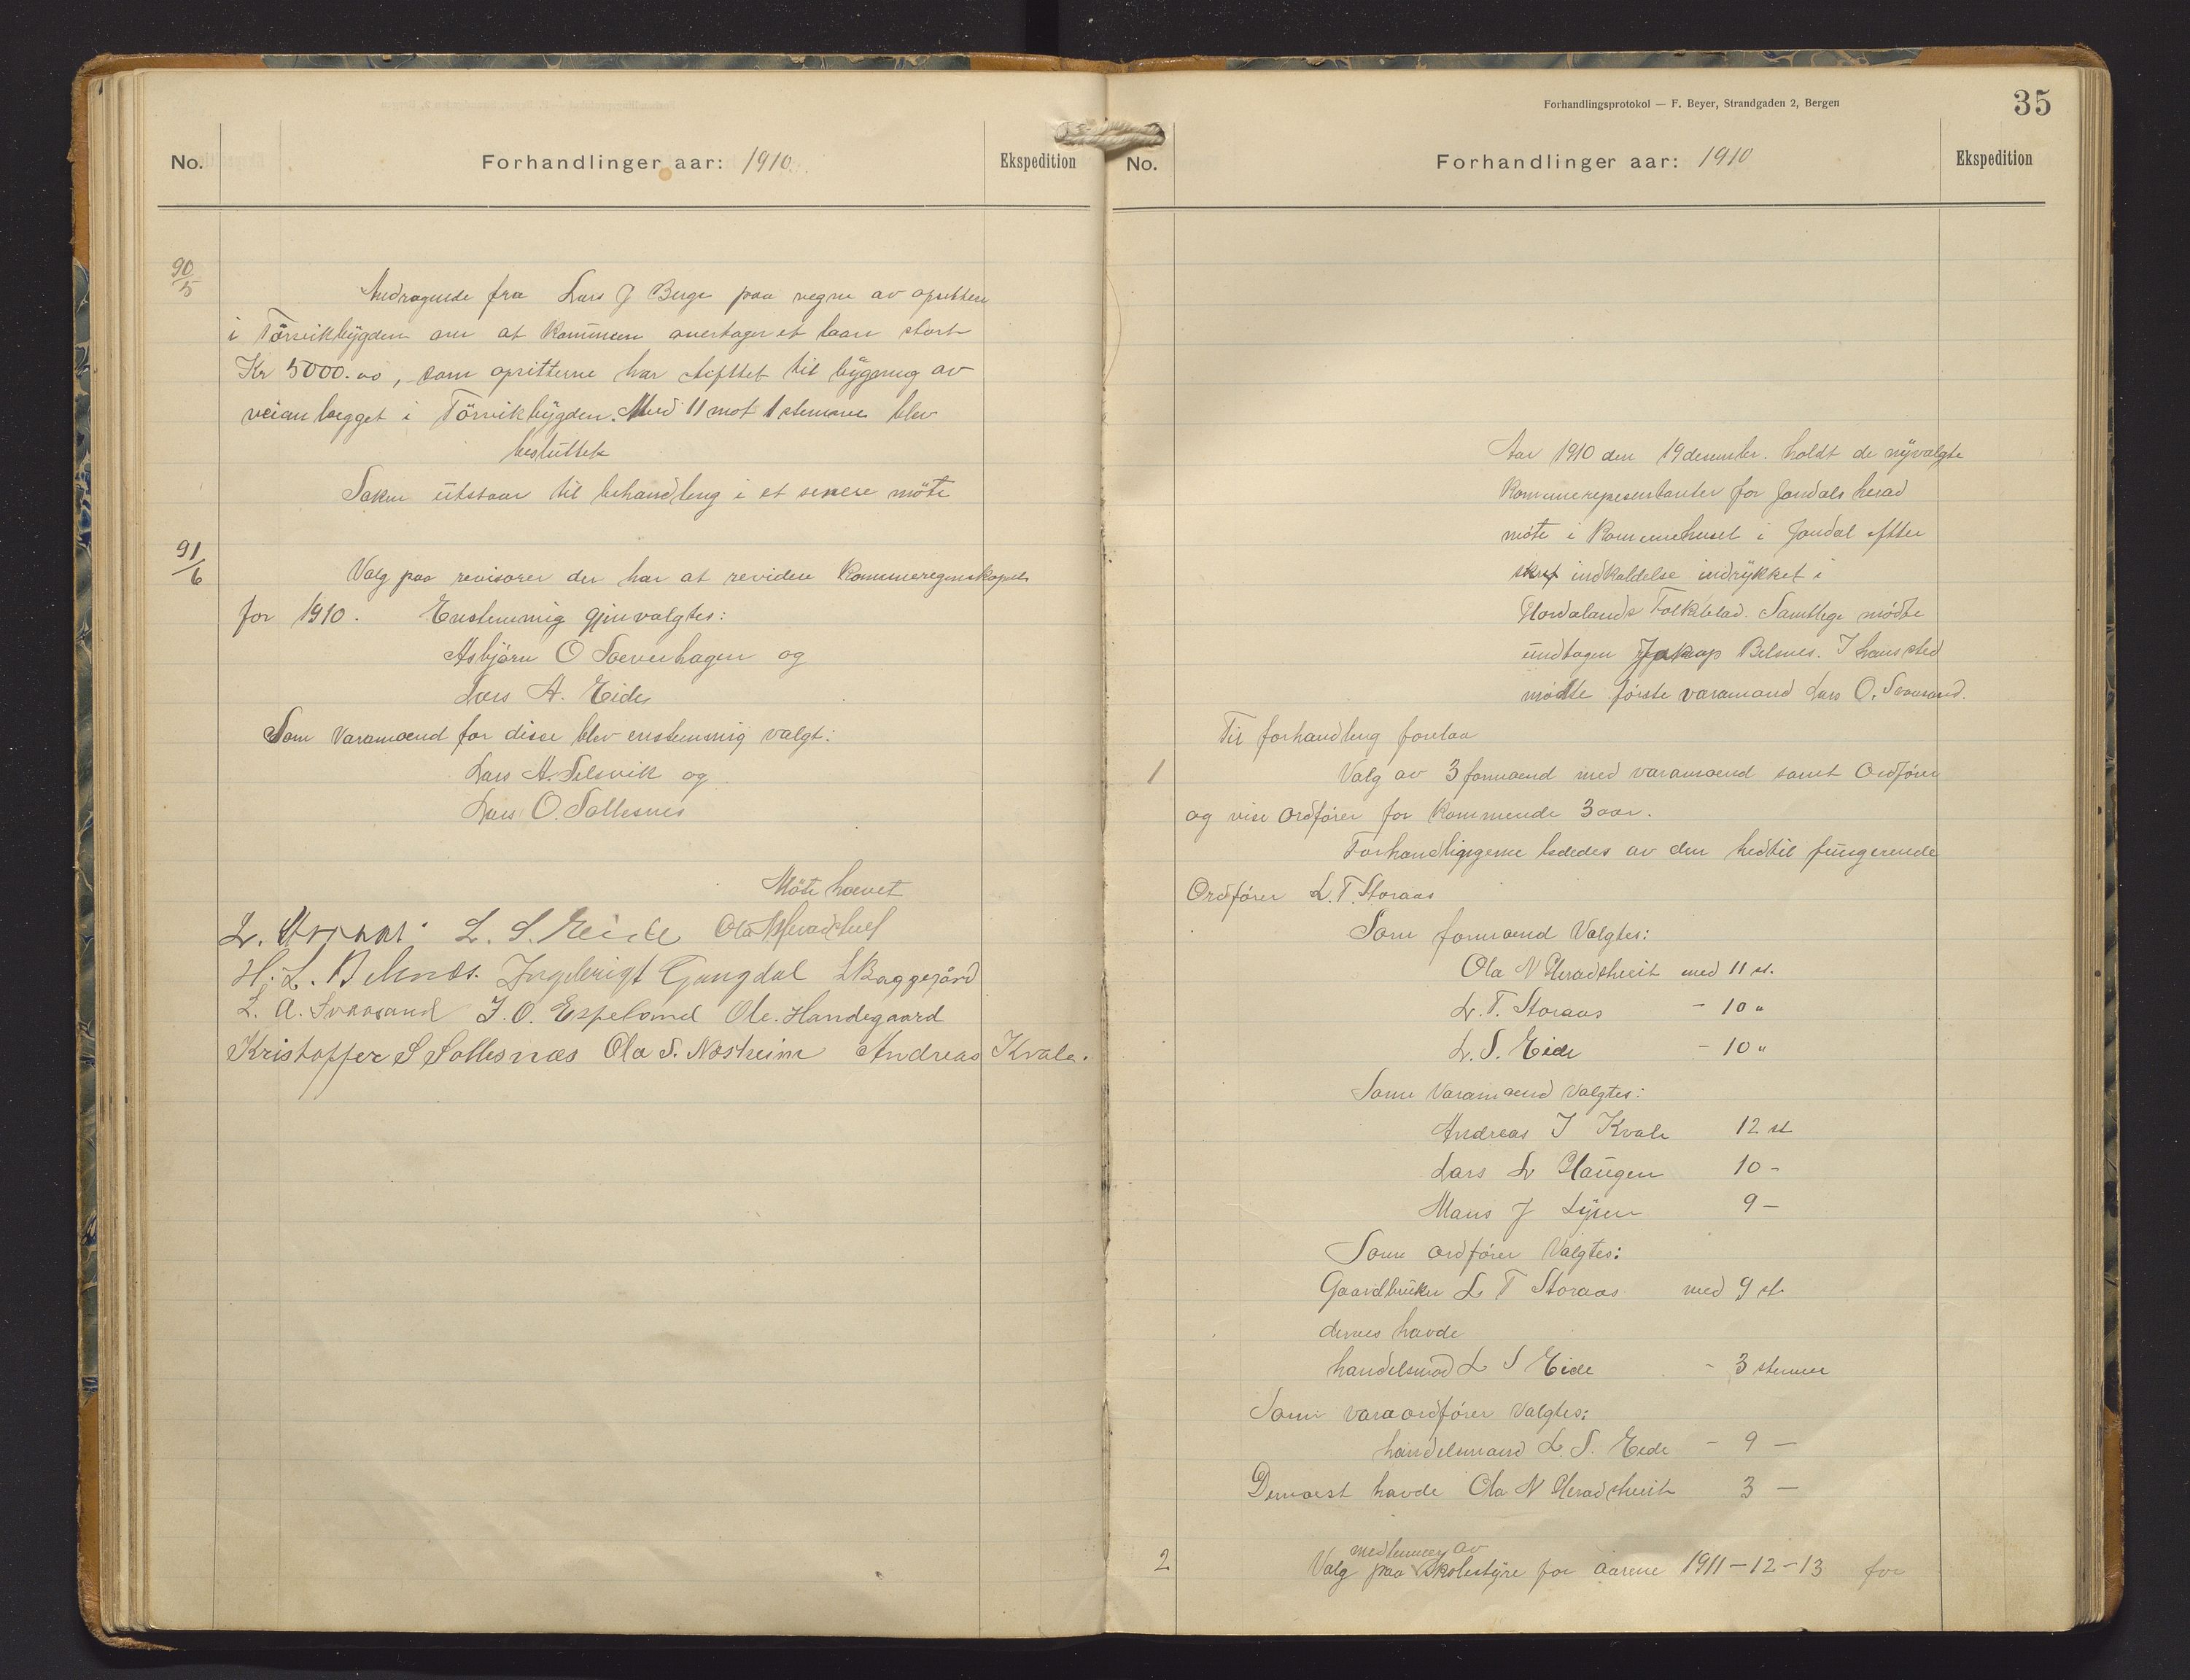 No.
Forhandlinger aar: 1910.
Ekspedition
90/5
Andragende fra Lars J Berge paa vegne av opsittere
i Törvikbygden om at kommunen overtager et laan stort
Kr 5000.00, som opsitterne har stiftet til bygning av
veianlægget i Törvikbygden. Med 11 mot 1 stemme blev
besluttet
Saken utstaar til behandling i et senere möte
91/6
Valg paa revisorer der har at revidere Kommuneregnskapet
for 1910. Enstemmig gjenvalgtes:
Asbjörn O Sævenhagen og
Lars A. Eide
Som Varamænd for disse blev enstemmig valgt:
Lars A. Selsvik og
Lars O. Sollesnes
Möte hævet
L. Storaas L. S. Eide Ola N Heradstveit
H. L. Belsnæs. Ingebrigt Gangdal L Baggegård
L. A. Svaasand J. O. Espeland Ole Handegaard
Kristoffer S Sollesnæs Ola S. Næsheim Andreas Kvale.
Forhandlingsprotokol — F. Beyer, Strandgaden 2, Bergen
35
No.
Forhandlinger aar: 1910
Ekspedition
Aar 1910 den 19 desember. holdt de nyvalgte
Kommunerepresentanter for Jondals herad
møte i Kommunehuset i Jondal efter
skr indkaldelse indrykket i
Hordalands Folkblad. Samtlige mødte
undtagen Jakop Belsnes. I hans sted
mødte første varamand Lars O. Svaasand.
Til forhandling forelaa
1
Valg av 3 formænd med varamænd samt Ordfører
og vise ordfører for kommende 3 aar.
Forhandlingerne lededes av den hedtil fungerende
Ordfører L. T. Storaas
Som formænd Valgtes:
Ola N Heradstveit med 11 st.
L. T. Storaas - 10 "
L. S. Eide - 10 "
Som Varamænd Valgtes:
Andreas J Kvale 12 st
Lars L Haugen 10 -
Mans J Lysen 9 -
Som ordfører Valgtes:
Gaardbruker L T Storaas med 9 st
dernes havde
handelsmad L S Eide - 3 stemmer
Som varaordfører Valgtes:
handelsmand L. S. Eide - 9 -
Dernæst havde Ola N Heradstveit 3 -
2
medlemmer av
Valg paa skolestyre for aarene 1911-12-13 for